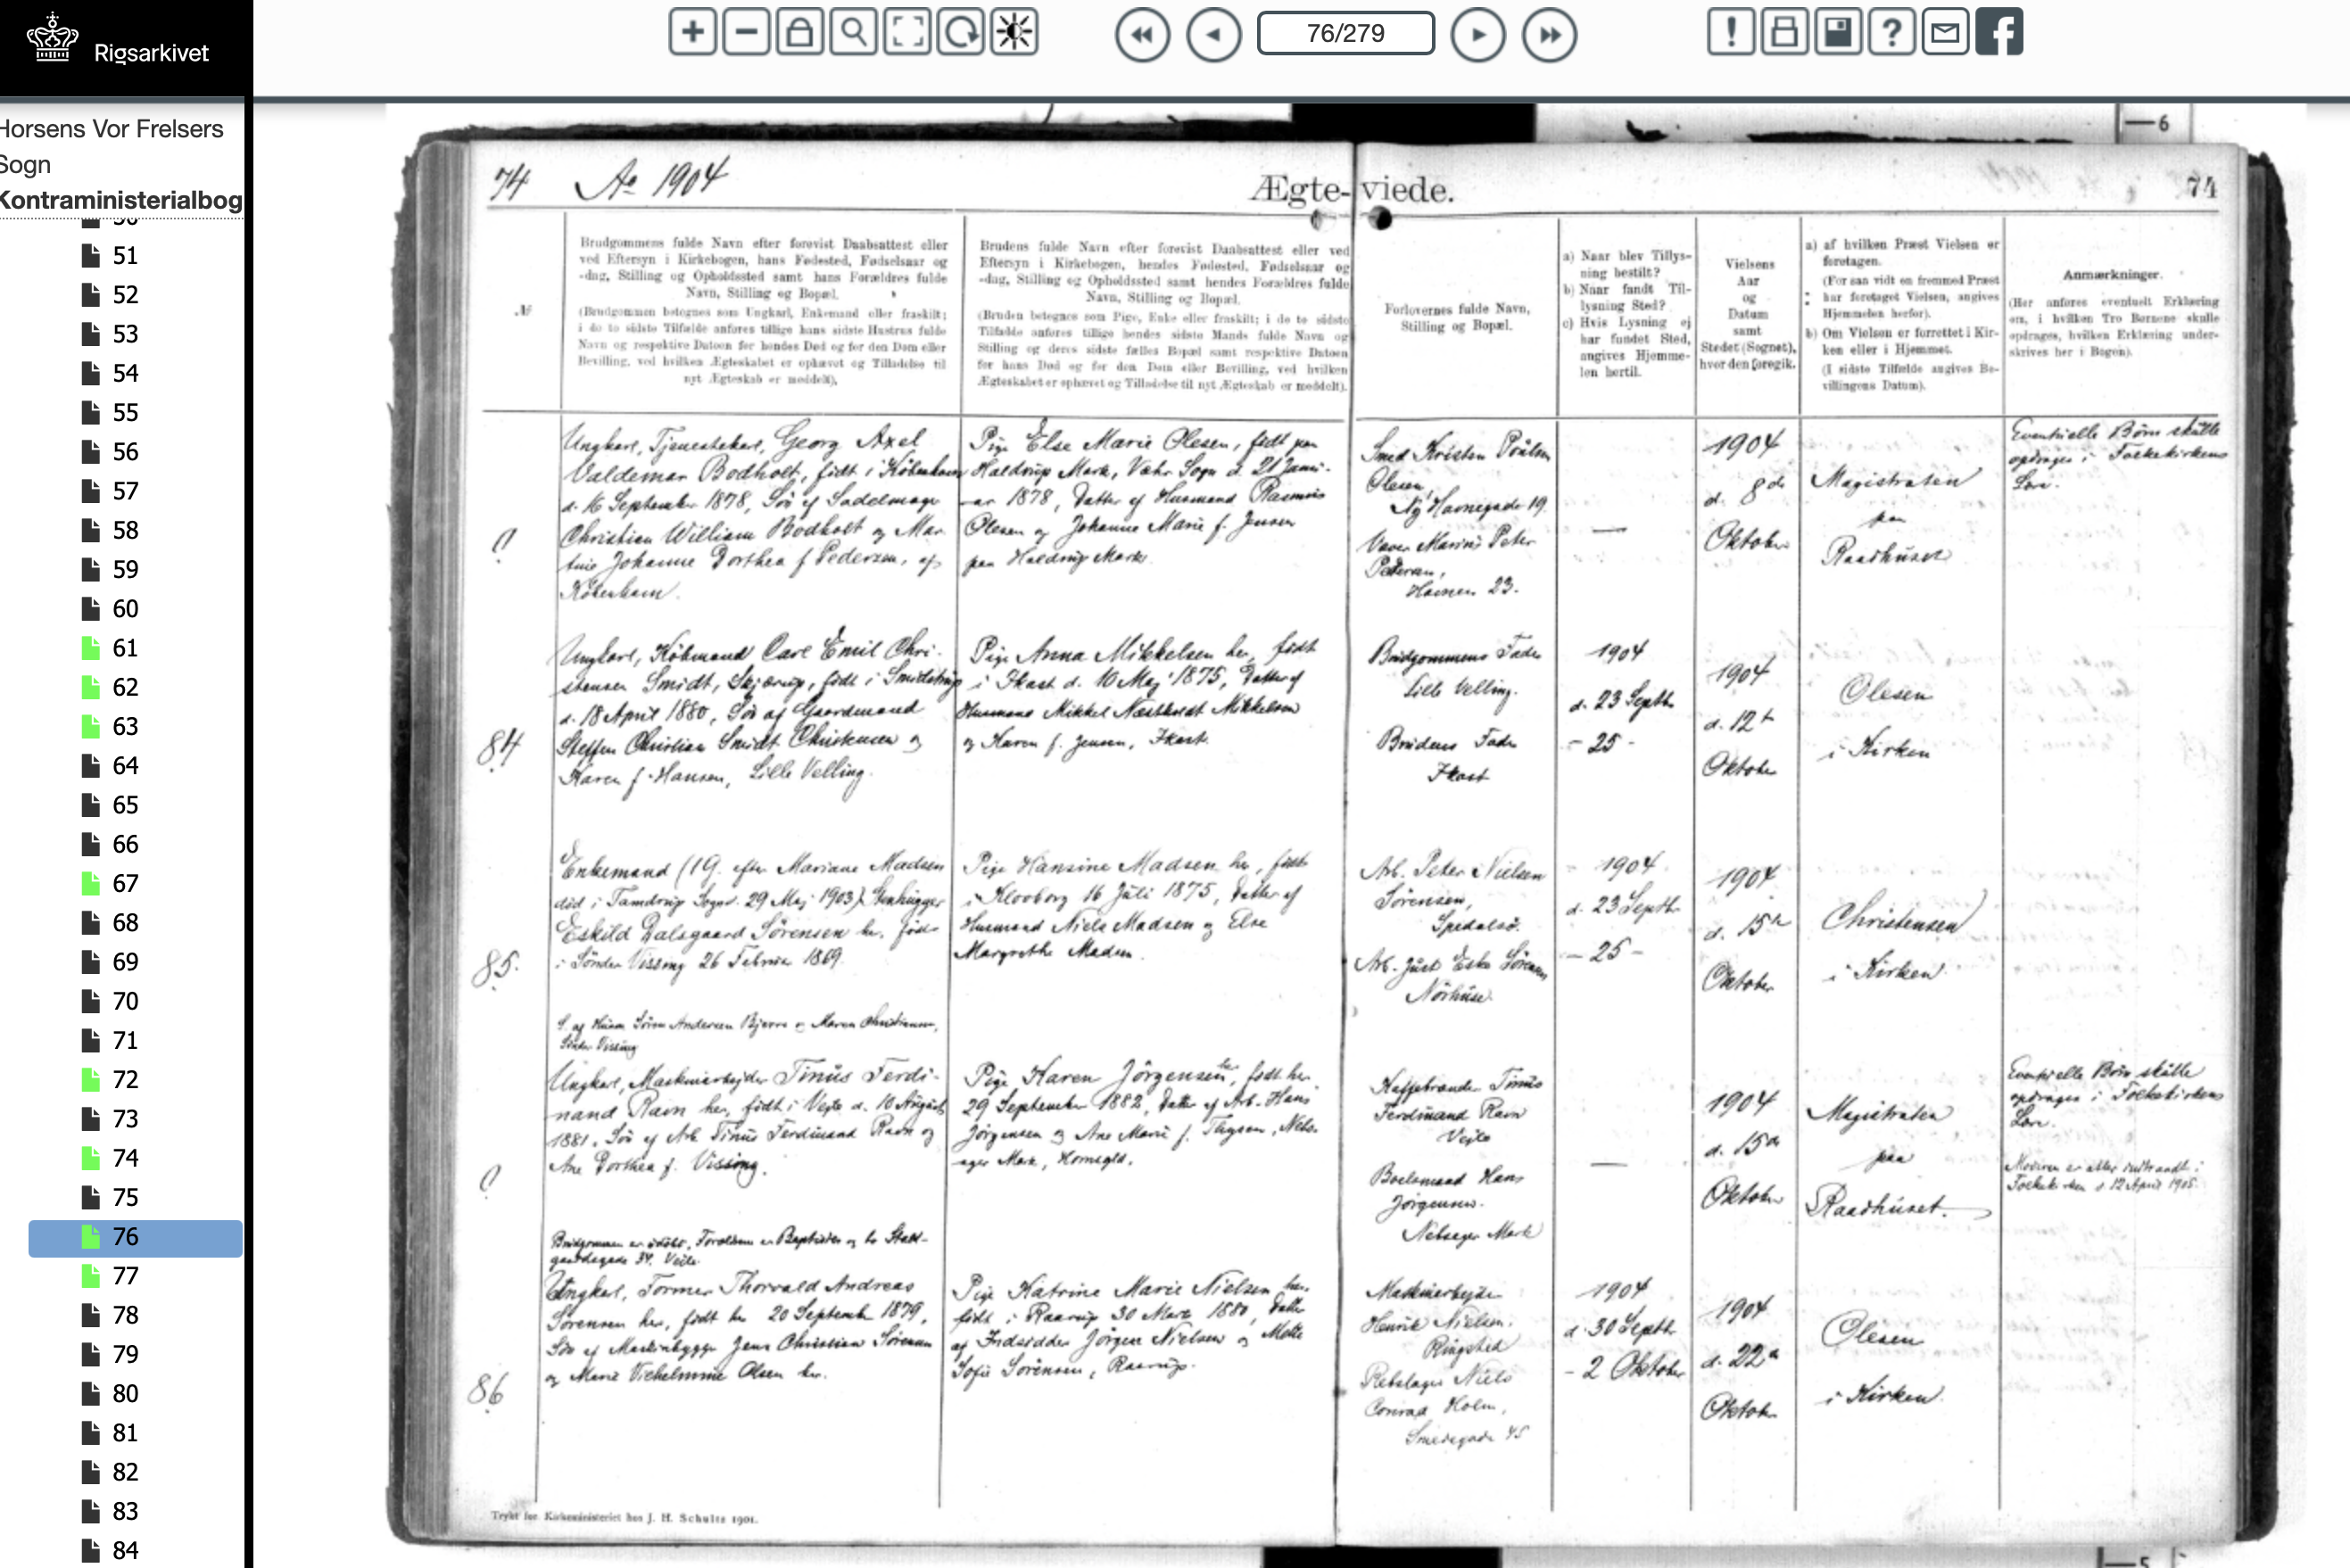 Rigsarkivet
76/279
Horsens Vor Frelsers
Sogn
Kontraministerialbog
50
51
52
53
54
55
56
57
58
59
60
61
62
63
64
65
66
67
68
69
70
71
72
73
74
75
76
77
78
79
80
81
82
83
84
6
74 Aº 1904
Ægte-viede.
74
Brudgommens fulde Navn efter forevist Daabsattest eller
ved Eftersyn i Kirkebogen, hans Fødested, Fødselsaar og
-dag, Stilling og Opholdssted samt hans Forældres fulde
Navn, Stilling og Bopæl.
(Brudgommen betegnes som Ungkarl, Enkemand eller fraskilt;
i de to sidste Tilfælde anføres tillige hans sidste Hustrus fulde
Navn og respektive Datoen for hendes Død og for den Dom eller
Bevilling, ved hvilken Ægteskabet er ophævet og Tilladelse til
nyt Ægteskab er meddelt).
Brudens fulde Navn efter forevist Daabsattest eller ved
Eftersyn i Kirkebogen, hendes Fødested, Fødselsaar og
-dag, Stilling og Opholdssted samt hendes Forældres fulde
Navn, Stilling og Bopæl.
(Bruden betegnes som Pige, Enke eller fraskilt; i de to sidste
Tilfælde anføres tillige hendes sidste Mands fulde Navn og
Stilling og deres sidste fælles Bopæl samt respektive Datoen
for hans Død og for den Dom eller Bevilling, ved hvilken
Ægteskabet er ophævet og Tilladelse til nyt Ægteskab er meddelt).
Forlovernes fulde Navn,
Stilling og Bopæl.
a) Naar blev Tillys-
ning bestilt?
b) Naar fandt Til-
lysning Sted?
c) Hvis Lysning ej
har fundet Sted,
angives Hjemme-
len hertil.
Vielsens
Aar
og
Datum
samt
Stedet (Sognet),
hvor den foregik.
a) af hvilken Præst Vielsen er
foretagen.
(For saa vidt en fremmed Præst
har foretaget Vielsen, angives
Hjemmelen herfor).
b) Om Vielsen er forrettet i Kir-
ken eller i Hjemmet.
(I sidste Tilfælde angives Be-
villingens Datum).
Anmærkninger.
(Her anføres eventuelt Erklæring
om, i hvilken Tro Børnene skulle
opdrages, hvilken Erklæring under-
skrives her i Bogen).
Ungkarl, Tjenestekarl, Georg Axel
Valdemar Bodholt, født i København
d. 16 September 1878, Søn af Sadelmager
Christian William Bodholt og Mar-
tine Johanne Dorthea f. Pedersen, af
København.
Pige Else Marie Olesen, født paa
Haldrup Mark, Vær Sogn d. 21 Janu-
ar 1878, Datter af Husmand Rasmus
Olesen og Johanne Marie f. Jensen
paa Haldrup Mark.
Smed Kristen Poulsen
Olesen
Ny Havnegade 19.
Væver Marius Peter
Pedersen,
Havnen 23.
—
1904
d. 8de
Oktober
Magistraten
paa
Raadhuset
Eventuelle Børn skulle
opdrages i Folkekirkens
Lære.
84
Ungkarl, Købmand Carl Emil Chri-
stensen Smidt, Skjærup, født i Smidstrup
d. 18 April 1880, Søn af Gaardmand
Steffen Christian Smidt Christensen og
Karen f. Hansen, Lille Velling.
Pige Anna Mikkelsen her, født
i Ikast d. 10 Maj 1875, Datter af
Husmand Mikkel Mikkelsen
og Karen f. Jensen, Ikast.
Brudgommens Fader
Lille Velling.
Brudens Fader
Ikast
1904
d. 23 Septb
- 25 -
1904
d. 12te
Oktober
Olesen
i Kirken
85.
Enkemand (19. efter Mariane Madsen
død i Tamdrup Sogn d. 29 Maj 1903) Stenhugger
Eskild Dalsgaard Sørensen her, født
i Sønder Vissing 26 Februar 1869.
S. af Husm. Søren Andersen Bjerre og Maren Christiansen,
Sønder Vissing
Pige Hansine Madsen her, født
i Klovborg 16 Juli 1875, Datter af
Husmand Niels Madsen og Else
Margrethe Madsen.
Arb. Peter Nielsen
Sørensen,
Spedalsø.
Arb. Just Eske Sørensen
Nørhuse.
1904
d. 23 Septb
- 25 -
1904
d. 15de
Oktober
Christensen
i Kirken
Ungkarl, Maskinarbejder Tinus Ferdi-
nand Ravn her, født i Vejle d. 10 August
1881, Søn af Arb. Tinus Ferdinand Ravn og
Ane Dorthea f. Vissing.
Brudgommen er udøbt, Forældrene er Baptister og bo Stald-
gaardsgade 34, Vejle.
Pige Karen Jørgensen her, født her
29 September 1882, Datter af Arb. Hans
Jørgensen og Ane Marie f. Thysen, Nebs-
ager Mark, Hornsyld.
Kaffebrænder Tinus
Ferdinand Ravn
Vejle
Boelsmand Hans
Jørgensen.
Nebsager Mark
—
1904
d. 15de
Oktober
Magistraten
paa
Raadhuset.
Eventuelle Børn skulle
opdrages i Folkekirkens
Lære.
Moderen er atter indtraadt i
Folkekirken d. 12 April 1905.
86
Ungkarl, Former Thorvald Andreas
Sørensen her, født her 20 September 1879,
Søn af Maskinbygger Jens Christian Sørensen
og Marie Vilhelmine Olsen her.
Pige Katrine Marie Nielsen her,
født i Raarup 30 Marts 1880, Datter
af Indsidder Jørgen Nielsen og Mette
Sofie Sørensen, Raarup.
Maskinarbejder
Henrik Nielsen,
Ringsted
Rebslager Niels
Conrad Holm,
Smedegade 45
1904
d. 30 Septb
- 2 Oktober
1904
d. 22de
Oktober
Olesen
i Kirken
Trykt for Kirkeministeriet hos J. H. Schultz 1901.
5